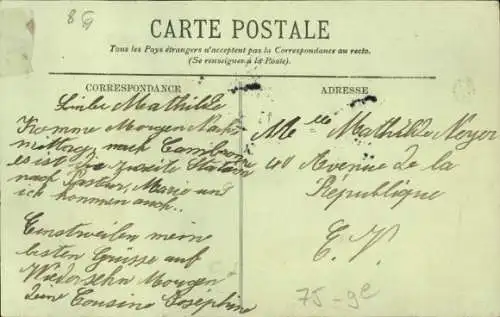 8 G
CARTE POSTALE
Tous les Pays étrangers n'acceptent pas la Correspondance au recto.
(Se renseigner à la Poste).
CORRESPONDANCE
Liebe Mathilde
Komme Morgen Nach-
mittag nach Cambronne
es ist die zweite Station
nach Pasteur, Marie und
ich kommen auch..
Einstweilen meine
besten Grüsse auf
Wiedersehn Morgen
deine Cousine Joséphine
ADRESSE
Melle Mathilde Noyer
40 Avenue de la
République
E. V.
75-9e